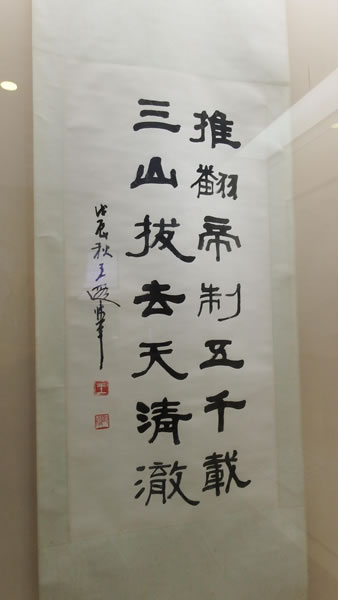 推翻帝制五千載
三山拔去天清澈
戊辰秋王遐舉